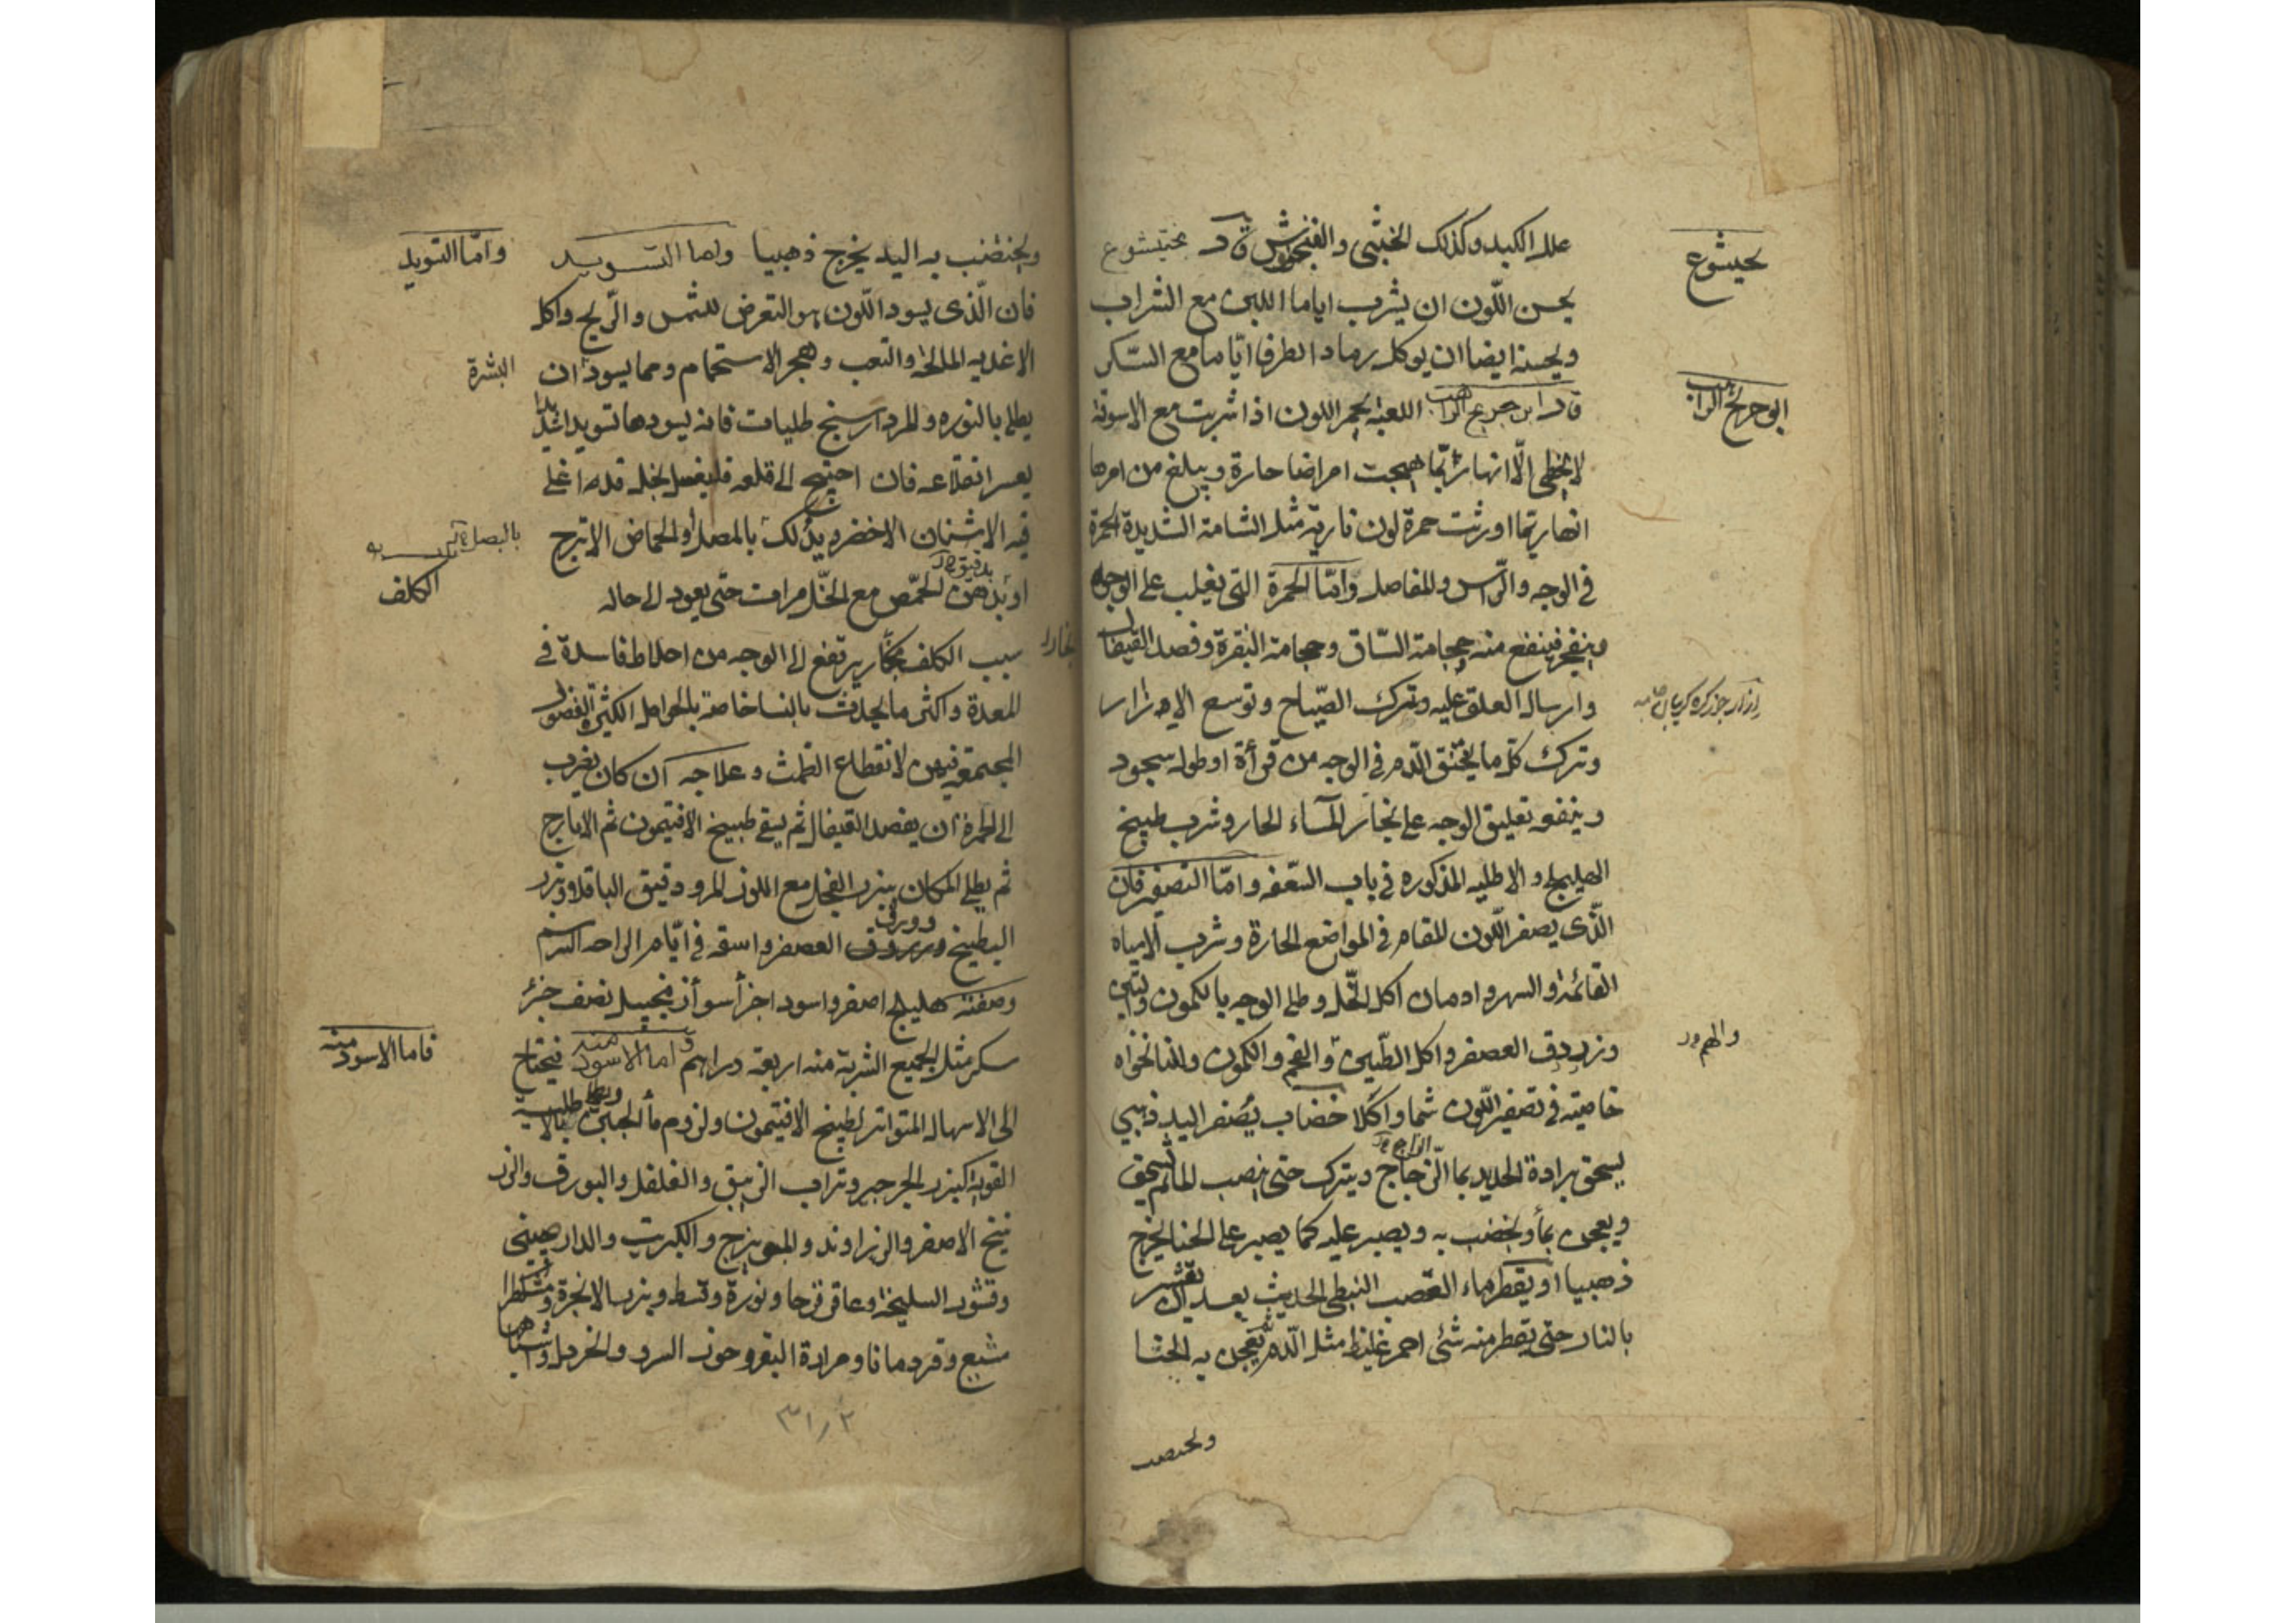 علل الكبد وكذلك الخنثى والفنجنوش قال بختيشوع
بختيشوع
يحسن اللون ان يشرب اياما اللبن مع الشراب
ويحسنه ايضا ان يوكل رماد الطرفا ايّاما مع السّكر
قال ابن جريج الراهب اللعبة يحمر اللون اذا شربت مع الاسوقة
ابو جريج الراهب
لا يخطى الّا انها ربّما هيجت امراضا حارة ويبلغ من امرها
انها ربّما اورثت حمرة لون نارية مثل الشامة الشديدة الحمرة
فى الوجه والرّاس والمفاصل وامّا الحمرة التى يغلب على الوجه
وينفجر فينفع منه حجامة السّاق وحجامة النقرة وفصد القيفال
وارسال العلق عليه وترك الصّياح وتوسع الازرار
وترك كلّ ما يختنق الدّم فى الوجه من قرأة او طول سجود
وينفعه تعليق الوجه على بخار المآء الحار وشرب طبيخ
الهليلج والاطليه المذكوره فى باب السّعفه وامّا التصفير فان
الّذى يصفر اللّون المقام فى المواضع الحارة وشرب المياه
القائمة والسهر وادمان اكل الخّل وطلى الوجه بالكمون والتين
وزردق العصفر واكل الطّين والفحم والكمون والنانخواه
خاصيّته فى تصفير اللّون شما واكلا خضاب يُصفر اليد ذهبي
يسحق برادة الحديد بما الزّجاج ويترك حتى ينصب الما ثم يسحق
الزاج
ويعجن بمأ ويخضب به ويصبر عليه كما يصبر على الحنا يخرج
ذهبيا او يقطر ماء القصب النبطى الحديث بعد ان يقشر
بالنار حتى يقطر منه شئ احمر غليظ مثل الدّم ثم يعجن به الحنا
ويختضب
ويختضب به اليد يخرج ذهبيا واما التسويد
وامّا التسويد
فان الّذى يسود اللّون هو التعرض للشمس والرّيح واكل
الاغذيه المالحة والتعب وهجر الاستحمام ومما يسود ان
البشرة
يطلى بالنوره والمردارسنج طليات فانه يسودها تسويدا شديدا
يعسر انقلاعه فان احتيج الى قلعه فليغسل بخل قد اغلى
فيه الاشنان الاخضر ويدلك بالمصل او الحماض الاترج
او بدهن الحمّص مع الخّل مرات حتّى يعود الى حاله
بدقيق
الكلف
سبب الكلف بخار يرتفع الى الوجه من اخلاط فاسدة فى
بخار
المعدة واكثر ما يحدث بالنسا خاصة بالحوامل الكثيرة الفضول
المجتمعه فيهن لانقطاع الطمث وعلاجه ان كان يضرب
الى الحمرة ان يفصد القيفال ثم يسقى طبيخ الافتيمون ثم الايارج
ثم يطلى المكان ببزر الفجل مع اللوز المر ودقيق الباقلا وبزر
البطيخ وورق العصفر واسقه فى ايّام الراحه
وصفته هليلج اصفر واسود اجزأ سوأ زنجبيل نصف جزء
سكر مثل الجميع الشربة منه اربعة دراهم واما الاسود منه فيحتاج
فاما الاسود منه
الى الاسهال المتواتر بطبيخ الافتيمون ولزوم مأ الجبن ويطلى بالاطلية
القوية كبزر الجرجير وتراب الزيبق والفلفل والبورق والزر
نيخ الاصفر والزراوند والميويزج والكبريت والدارصينى
وقشور السليخة وعاقرقرحا ونورة وقسط وبزر الانجرة ومشكطرا
مشيع وقردمانا ومرارة البقر وجوز السرو والخردل
٣١٢